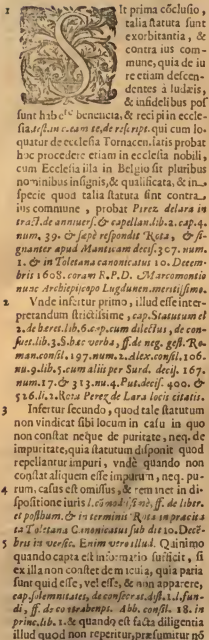 1 SIt prima cõclusio,
talia statuta sunt
exorbitantia, &
contra ius com-
mune, quia de iu
re etiam descen-
dentes à Iudæis,
& infidelibus pos
sunt habere beneficia, & recipi in eccle-
sia, in c. eam te, de rescript. qui cum lo-
quatur de ecclesia Tornacen. satis probat
hoc procedere etiam in ecclesia nobili,
cum Ecclesia illa in Belgio sit pluribus
nominibus insignis, & qualificata, & in
specie quod talia statuta sint contra
ius commune, probat Pirez de lara in
tract. de anniuers. & capellan. lib. 2. cap. 4.
num. 39. & sæpè respondit Rota, & si-
gnanter apud Mantican. decis. 307. num.
1. & in Toletana canonicatus 10. Decem-
bris 1608. coram R. P. D. Marcomontio
nunc Archiepiscopo Lugdunen. meritissimo.
2 Vnde infertur primo, illud esse inter-
pretandum strictissime, cap. Statutum el
2. de heret. lib. 6. cap. cum dilectus, de con-
suet. lib. 3. §. hæc verba, ff. de neg. gest. Ro-
man. consil. 197. num. 2. Alex. consil. 106.
nu. 9. lib. 5. cum aliis per Surd. decis. 167.
num. 17. & 313. nu. 4. Put. decis. 400. &
526. li. 2. Rota Perez de Lara locis citatis.
3 Infertur secundo, quod tale statutum
non vindicat sibi locum in casu in quo
non constat neque de puritate, neq. de
impuritate, quia statutum disponit quod
repellantur impuri, vndè quando non
constat aliquem esse impurum, neq. pu-
4 rum, casus est omissus, & remanet in di-
spositione iuris l. commodissime, ff. de liber.
& posthum. & in terminis Rota in præcita-
ta Toletana Canonicatus sub dit 10. Decẽ-
5 bris in versic. Enim vero illud. Quinimo
quando capta est informatio sufficit, si
ex illa non constet de macula, quia paria
sunt quid esse, vel esse, & non apparere,
cap. solemnitates, de consecrat. dist. 1. l. fun-
di, ff. de contrahenpt. Abb. consil. 18. in
princ. lib. 1. & quando est facta diligentia
illud quod non repentur, præsumitur nõ